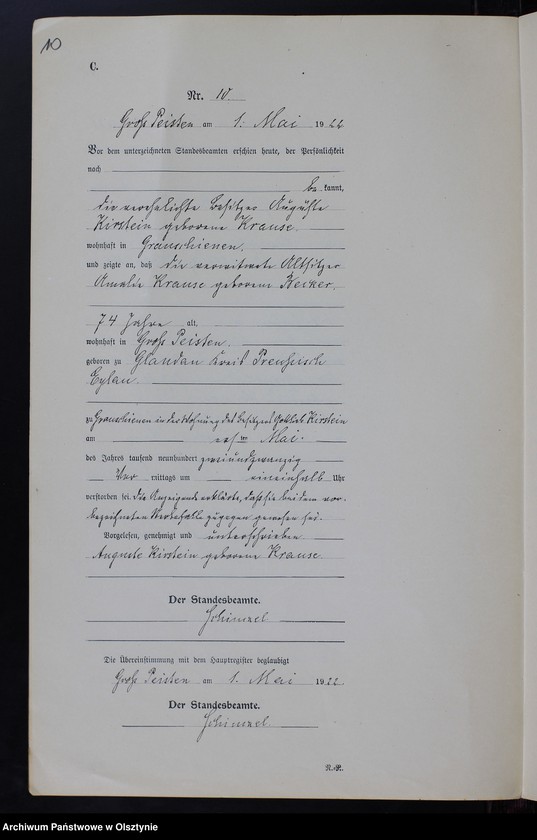 10
C.
Nr. 10.
Groß Peisten am 1. Mai 1922
Vor dem unterzeichneten Standesbeamten erschien heute, der Persönlichkeit
nach
be kannt,
die verehelichte Besitzer Auguste
Kirstein geborene Krause.
wohnhaft in Grauschienen.
und zeigte an, daß die verwitwete Altsitzer
Amalie Krause geborene
74 Jahre alt,
wohnhaft in Groß Peisten.
geboren zu Glandau Kreis Preußisch
Eylau.
zu Grauschienen in der Wohnung des Besitzers Gottlieb Kirstein
am ersten Mai
des Jahres tausend neunhundert zweiundzwanzig
Vor mittags um eineinhalb Uhr
verstorben sei. Die Anzeigende erklärte, daß sie bei dem vor-
bezeichneten Sterbefalle zugegen gewesen sei.
Vorgelesen, genehmigt und unterschrieben
Auguste Kirstein geborene Krause
Der Standesbeamte.
Schimzel
Die Übereinstimmung mit dem Hauptregister beglaubigt
Groß Peisten am 1. Mai 1922.
Der Standesbeamte.
Schimzel
Archiwum Państwowe w Olsztynie